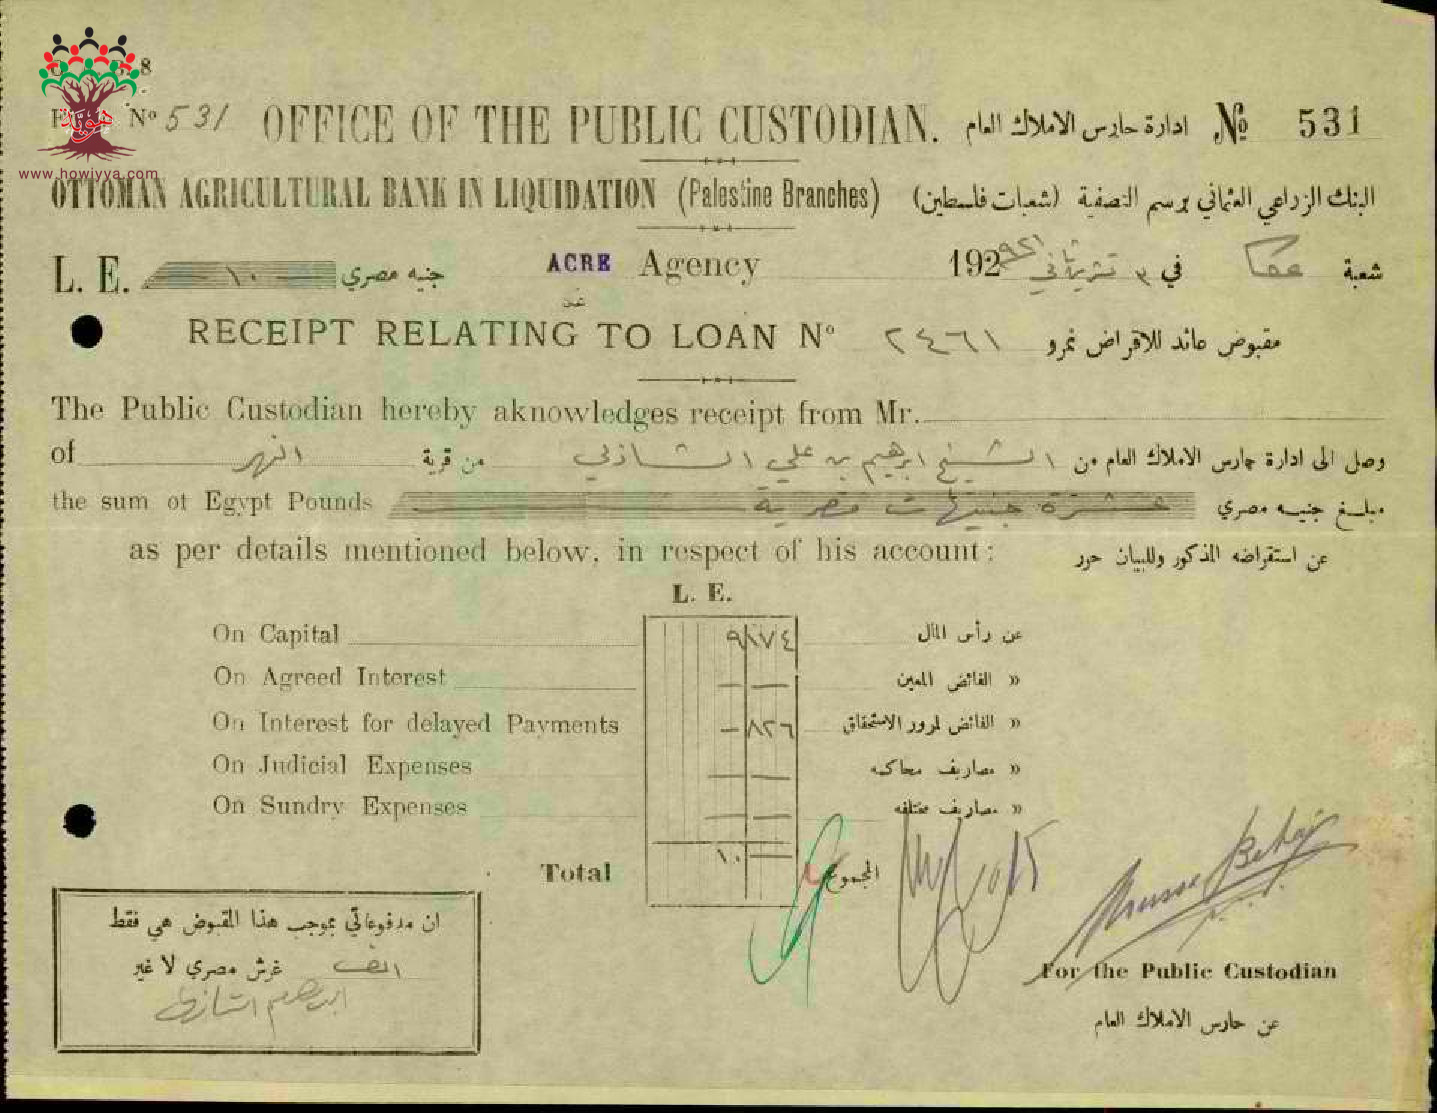 هويّة
www.howiyya.com
8
Nº 531 OFFICE OF THE PUBLIC CUSTODIAN. ادارة حارس الاملاك العام Nº 531
OTTOMAN AGRICULTURAL BANK IN LIQUIDATION (Palestine Branches) البنك الزراعي العثماني برسم التصفية (شعبات فلسطين)
L. E. ١٠ جنيه مصري ACRE Agency 192 شعبة عكا في ٣ تشرين ثاني ٩٢١
RECEIPT RELATING TO LOAN Nº ٢٤٦١ مقبوض عائد للاقراض نمرو
The Public Custodian hereby aknowledges receipt from Mr.
of وصل الى ادارة حارس الاملاك العام من الشيخ ابرهيم بن علي الشاذلي من قرية النهر
the sum of Egypt Pounds مبلغ جنيه مصري عشرة جنيهات مصرية
as per details mentioned below, in respect of his account : عن استقراضه المذكور وللبيان حرر
L. E.
On Capital ٩ ١٧٤ عن رأس المال
On Agreed Interest — — » الفائض المعين
On Interest for delayed Payments — ٨٢٦ » الفائض لمرور الاستحقاق
On Judicial Expenses — — » مصاريف محاكمه
On Sundry Expenses — — » مصاريف مختلفه
Total ١٠ — المجموع
ان مدفوعاتي بموجب هذا المقبوض هي فقط
الف غرش مصري لا غير
ابراهيم الشاذلي
For the Public Custodian
عن حارس الاملاك العام